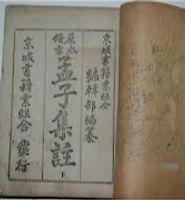 京城書籍業組合
編輯部編纂
原本
備旨
孟子集註 下
京城書籍業組合 發行